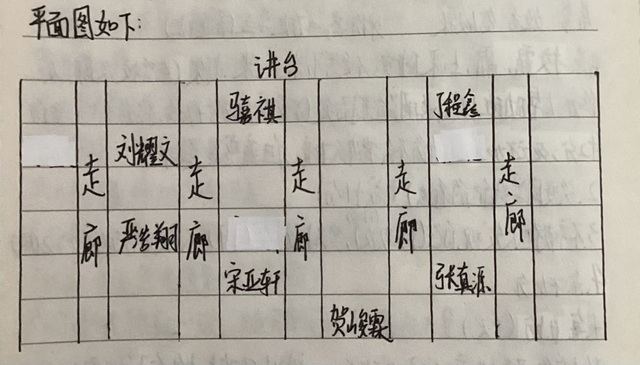 平面图如下:
讲台
骑祺 丁程鑫
刘耀文
走 走 走 走 走
廊 严浩翔 廊 廊 廊 廊
宋亚轩 张真源
贺峻霖